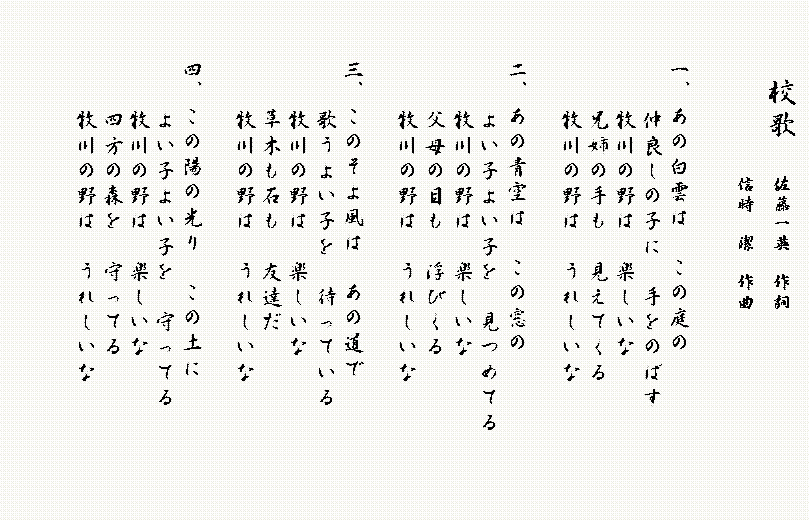 校歌
佐藤一英 作詞
信時 潔 作曲
一、あの白雲は この庭の
仲良しの子に 手をのばす
牧川の野は 楽しいな
兄姉の手も 見えてくる
牧川の野は うれしいな
二、あの青空は この窓の
よい子よい子を 見つめてる
牧川の野は 楽しいな
父母の目も 浮びくる
牧川の野は うれしいな
三、このそよ風は あの道で
歌うよい子を 待っている
牧川の野は 楽しいな
草木も石も 友達だ
牧川の野は うれしいな
四、この陽の光り この土に
よい子よい子を 守ってる
牧川の野は 楽しいな
四方の森を 守ってる
牧川の野は うれしいな